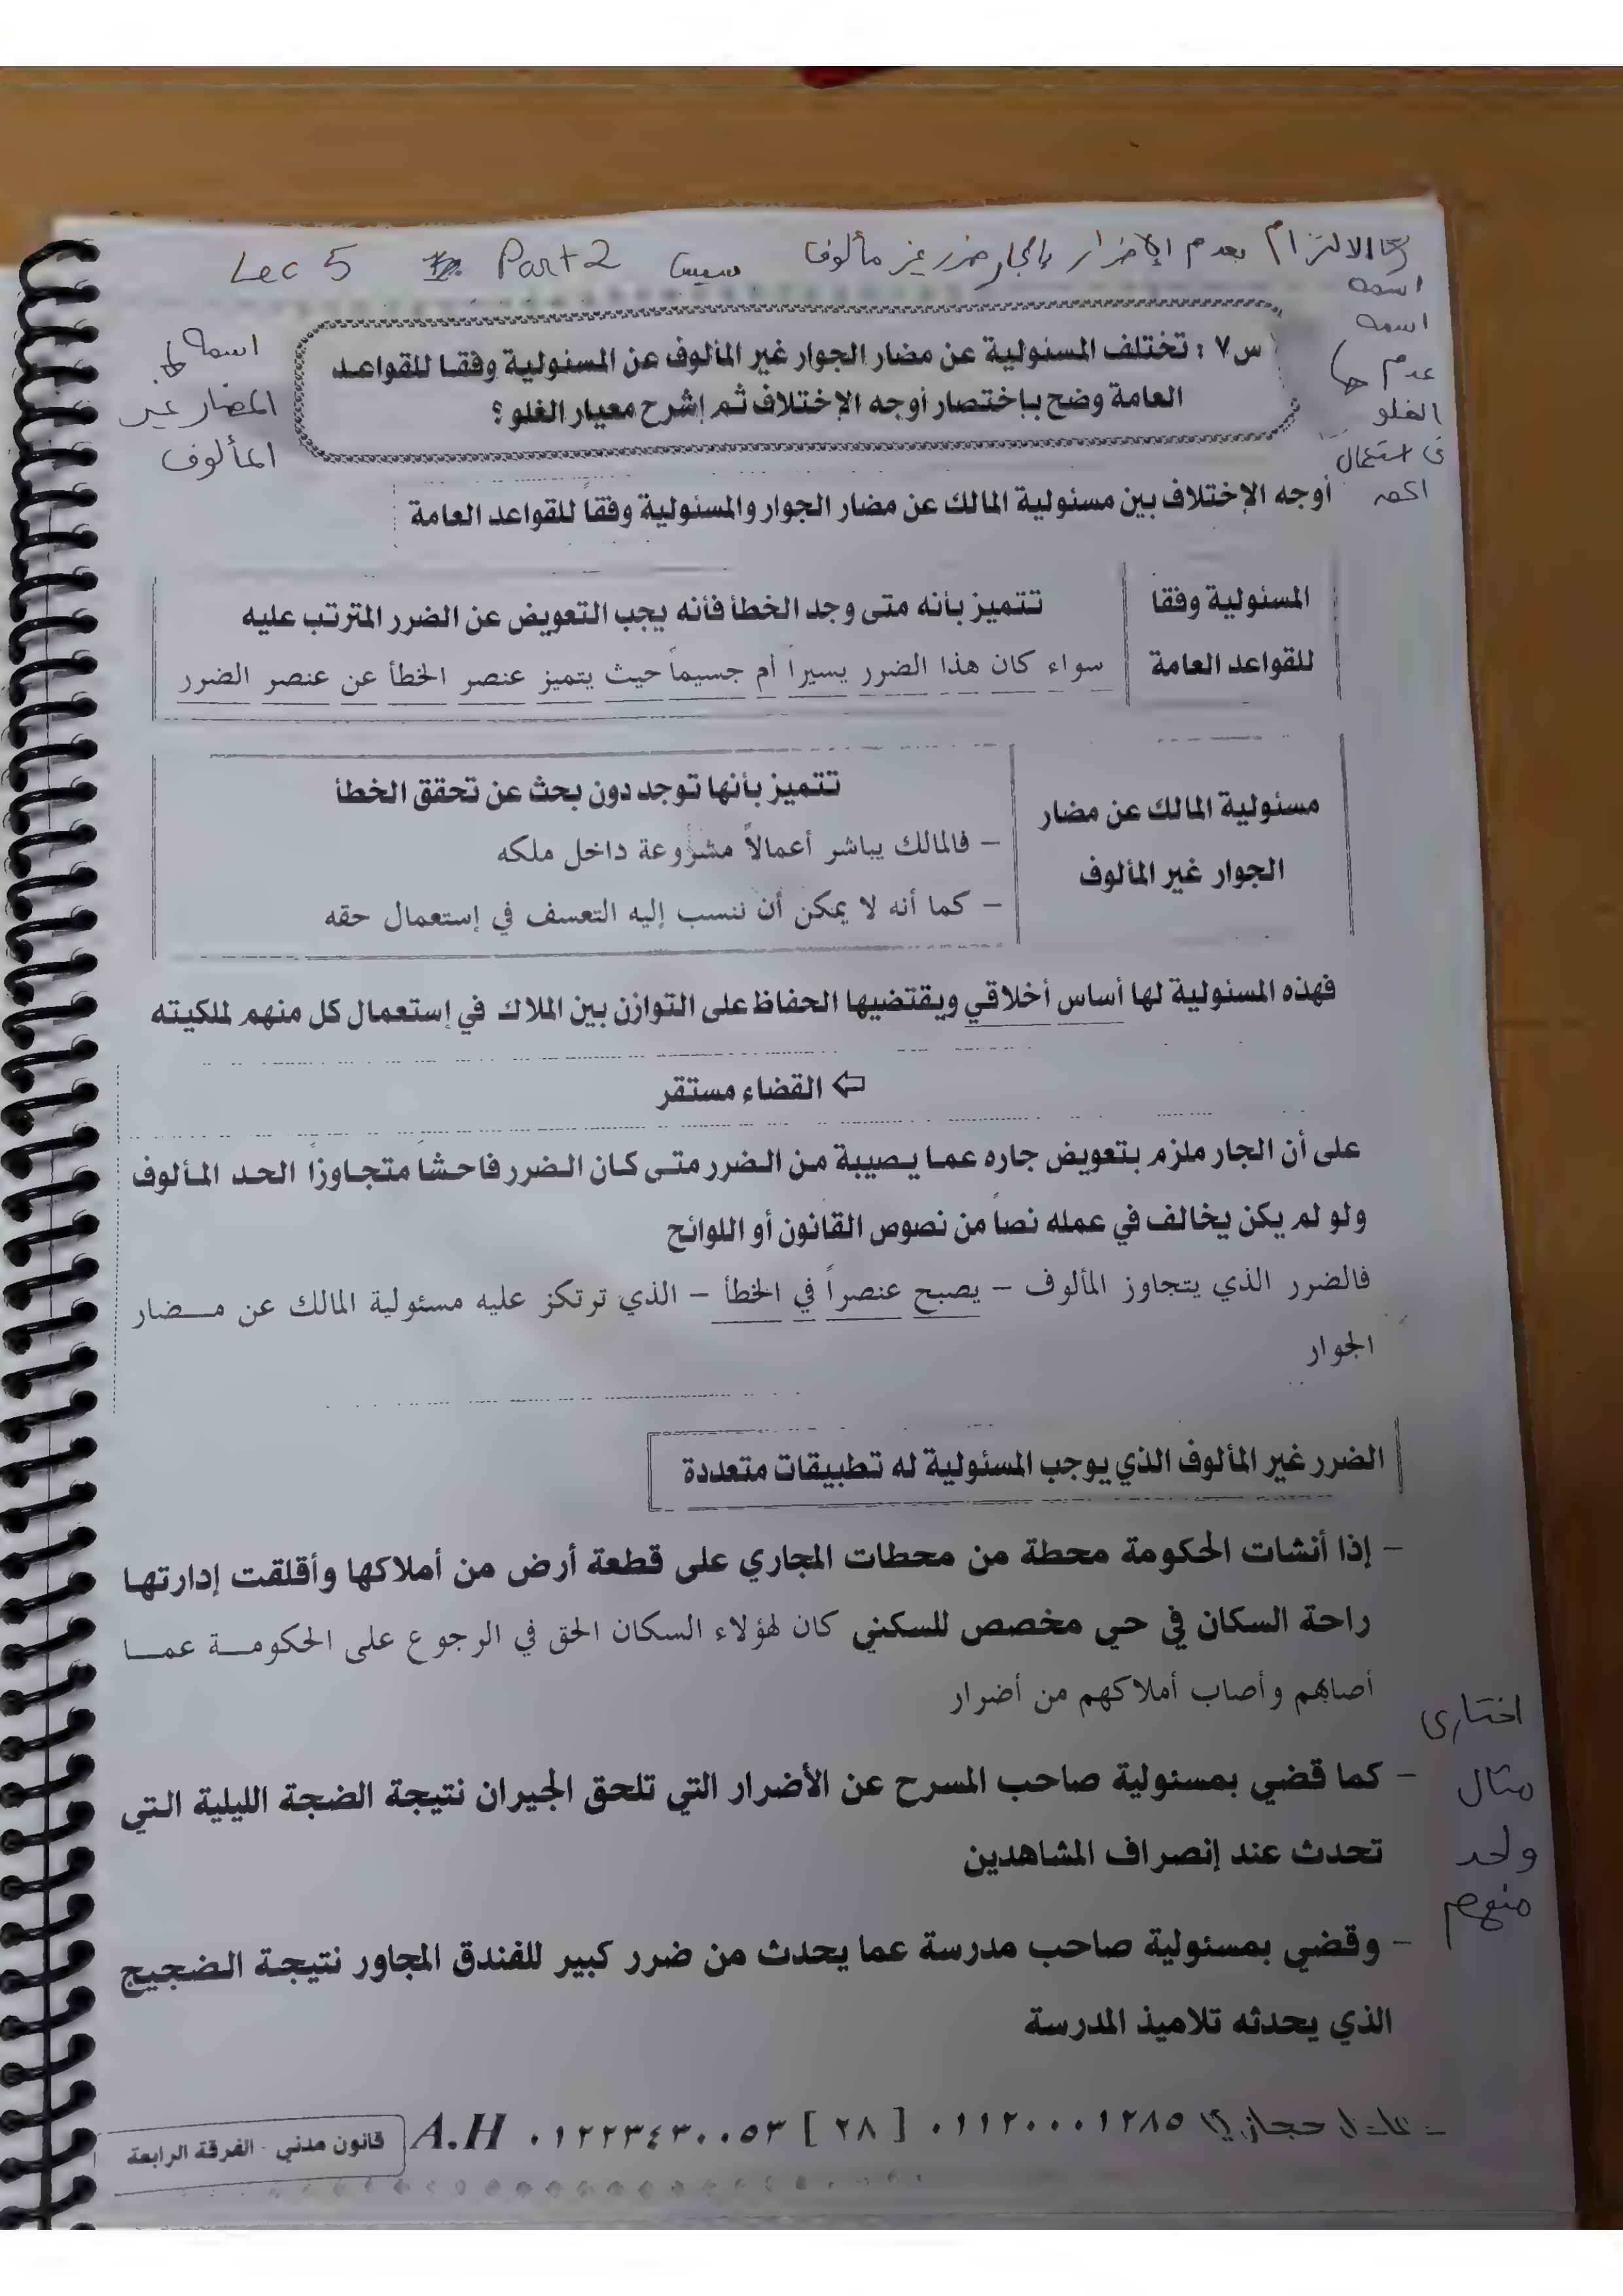 الالتزام بعدم الإضرار بالجار ضرر غير مألوف Part 2 Lec 5
اسمه
اسمه
عدم
الغلو
فى استعمال
اسمه
المضار غير
المألوف
س٧ : تختلف المسئولية عن مضار الجوار غير المألوف عن المسئولية وفقا للقواعد
العامة وضح بإختصار أوجه الإختلاف ثم إشرح معيار الغلو ؟
أوجه الإختلاف بين مسئولية المالك عن مضار الجوار والمسئولية وفقاً للقواعد العامة
المسئولية وفقا
للقواعد العامة
تتميز بأنه متى وجد الخطأ فأنه يجب التعويض عن الضرر المترتب عليه
سواء كان هذا الضرر يسيراً أم جسيماً حيث يتميز عنصر الخطأ عن عنصر الضرر
مسئولية المالك عن مضار
الجوار غير المألوف
تتميز بأنها توجد دون بحث عن تحقق الخطأ
– فالمالك يباشر أعمالاً مشروعة داخل ملكه
– كما أنه لا يمكن أن ننسب إليه التعسف في إستعمال حقه
فهذه المسئولية لها أساس أخلاقي ويقتضيها الحفاظ على التوازن بين الملاك في إستعمال كل منهم لملكيته
⇦ القضاء مستقر
على أن الجار ملزم بتعويض جاره عما يصيبة من الضرر متى كان الضرر فاحشاً متجاوزاً الحد المألوف
ولو لم يكن يخالف في عمله نصاً من نصوص القانون أو اللوائح
فالضرر الذي يتجاوز المألوف – يصبح عنصراً في الخطأ – الذي ترتكز عليه مسئولية المالك عن مضار
الجوار
الضرر غير المألوف الذي يوجب المسئولية له تطبيقات متعددة
– إذا أنشات الحكومة محطة من محطات المجاري على قطعة أرض من أملاكها وأقلقت إدارتها
راحة السكان في حي مخصص للسكني كان لهؤلاء السكان الحق في الرجوع على الحكومة عما
أصابهم وأصاب أملاكهم من أضرار
– كما قضي بمسئولية صاحب المسرح عن الأضرار التي تلحق الجيران نتيجة الضجة الليلية التي
تحدث عند إنصراف المشاهدين
– وقضي بمسئولية صاحب مدرسة عما يحدث من ضرر كبير للفندق المجاور نتيجة الضجيج
الذي يحدثه تلاميذ المدرسة
اختارى
مثال
واحد
منهم
عادل حجازي ٠١١٢٠٠٠١٢٨٥ [ ٢٨ ] ٠١٢٢٣٤٣٠٠٥٣ A.H
قانون مدني - الفرقة الرابعة